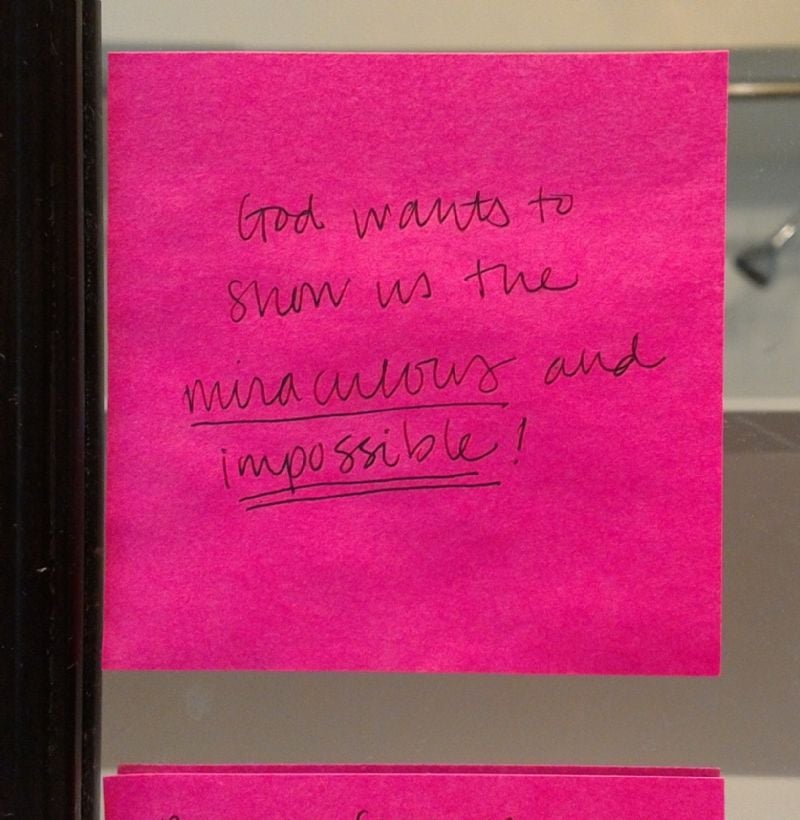 God wants to
show us the
miraculous and
impossible!